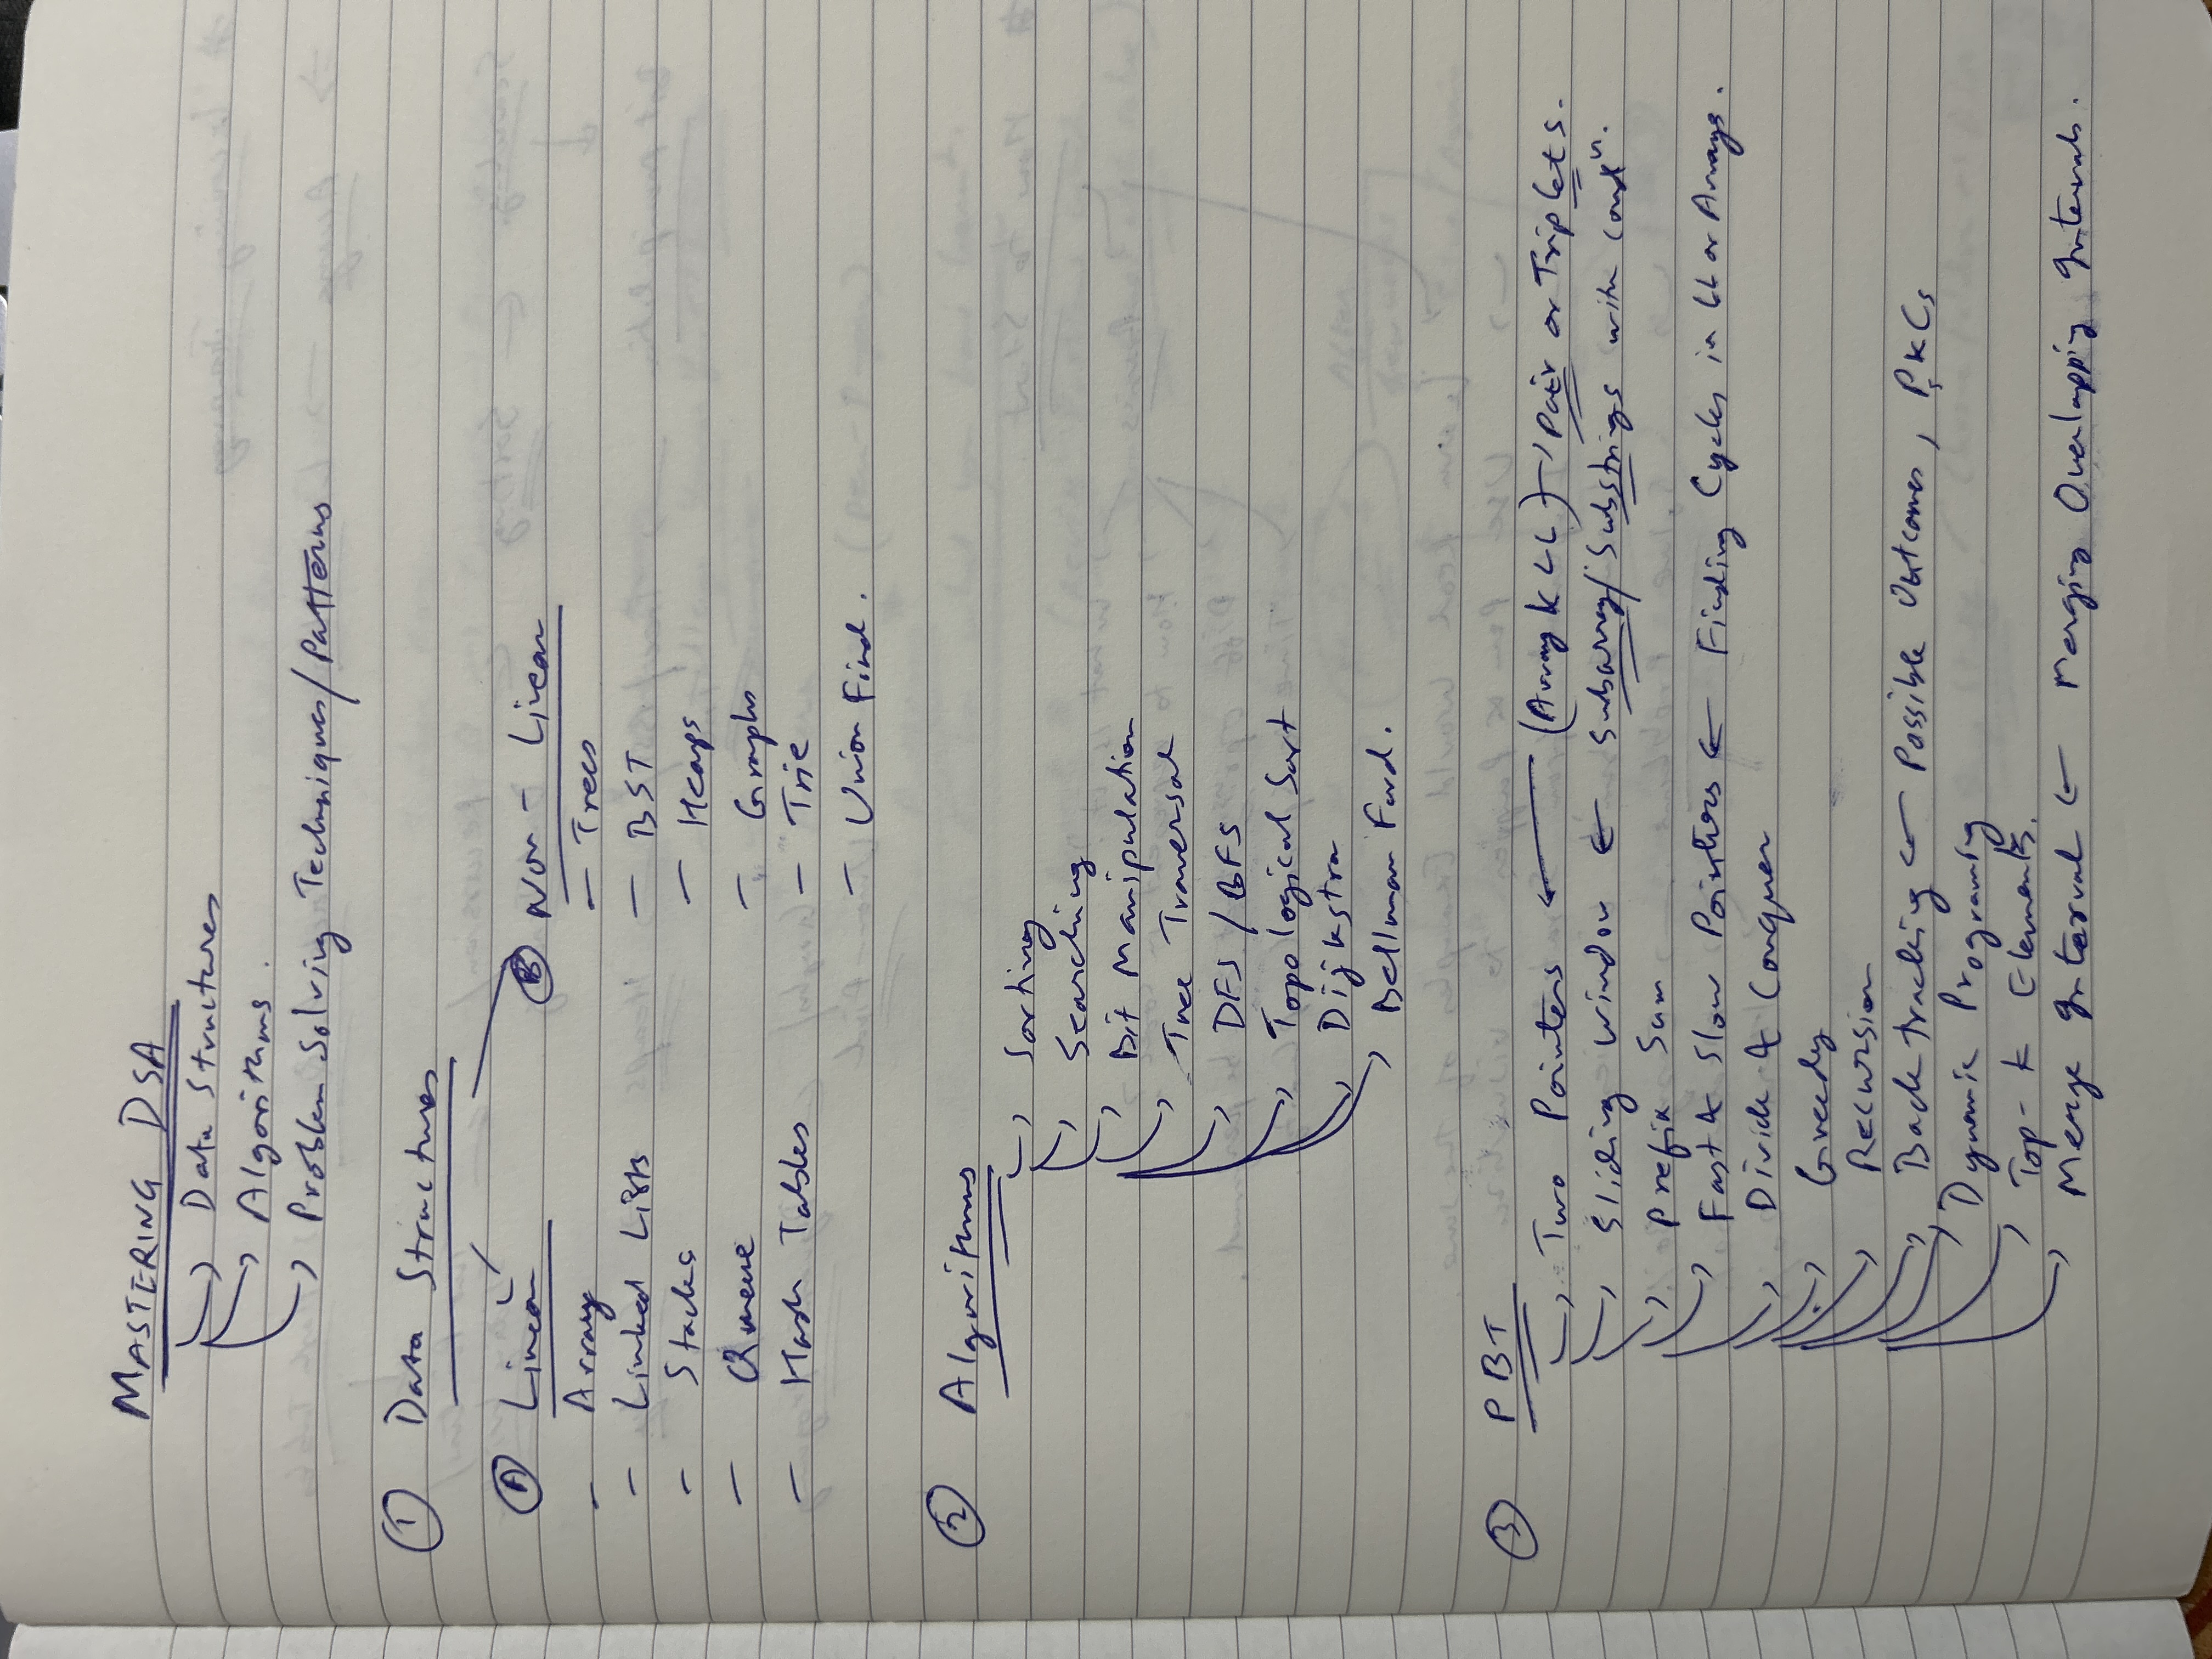 MASTERING DSA
Data Structures
Algorithms.
Problem Solving Techniques/Patterns
① Data Structures
Ⓐ Linear
- Array
- Linked Lists
- Stacks
- Queue
- Hash Tables
Ⓑ Non-Linear
- Trees
- BST
- Heaps
- Graphs
- Trie
- Union Find.
② Algorithms
Sorting
Searching
Bit Manipulation
Tree Traversal
DFS / BFS
Topological Sort
Dijkstra
Bellman Ford.
③ PBT
Two Pointers ← (Array & LL) → Pair or Triplets.
Sliding Window ← Subarray/Substrings with condⁿ.
Prefix Sum
Fast & Slow Pointers ← Finding Cycles in LL or Arrays.
Divide & Conquer
Greedy
Recursion
Backtracking ← Possible Outcomes, Ps & Cs
Dynamic Programing
Top-K Elements.
Merge Interval ← Merging Overlapping Intervals.